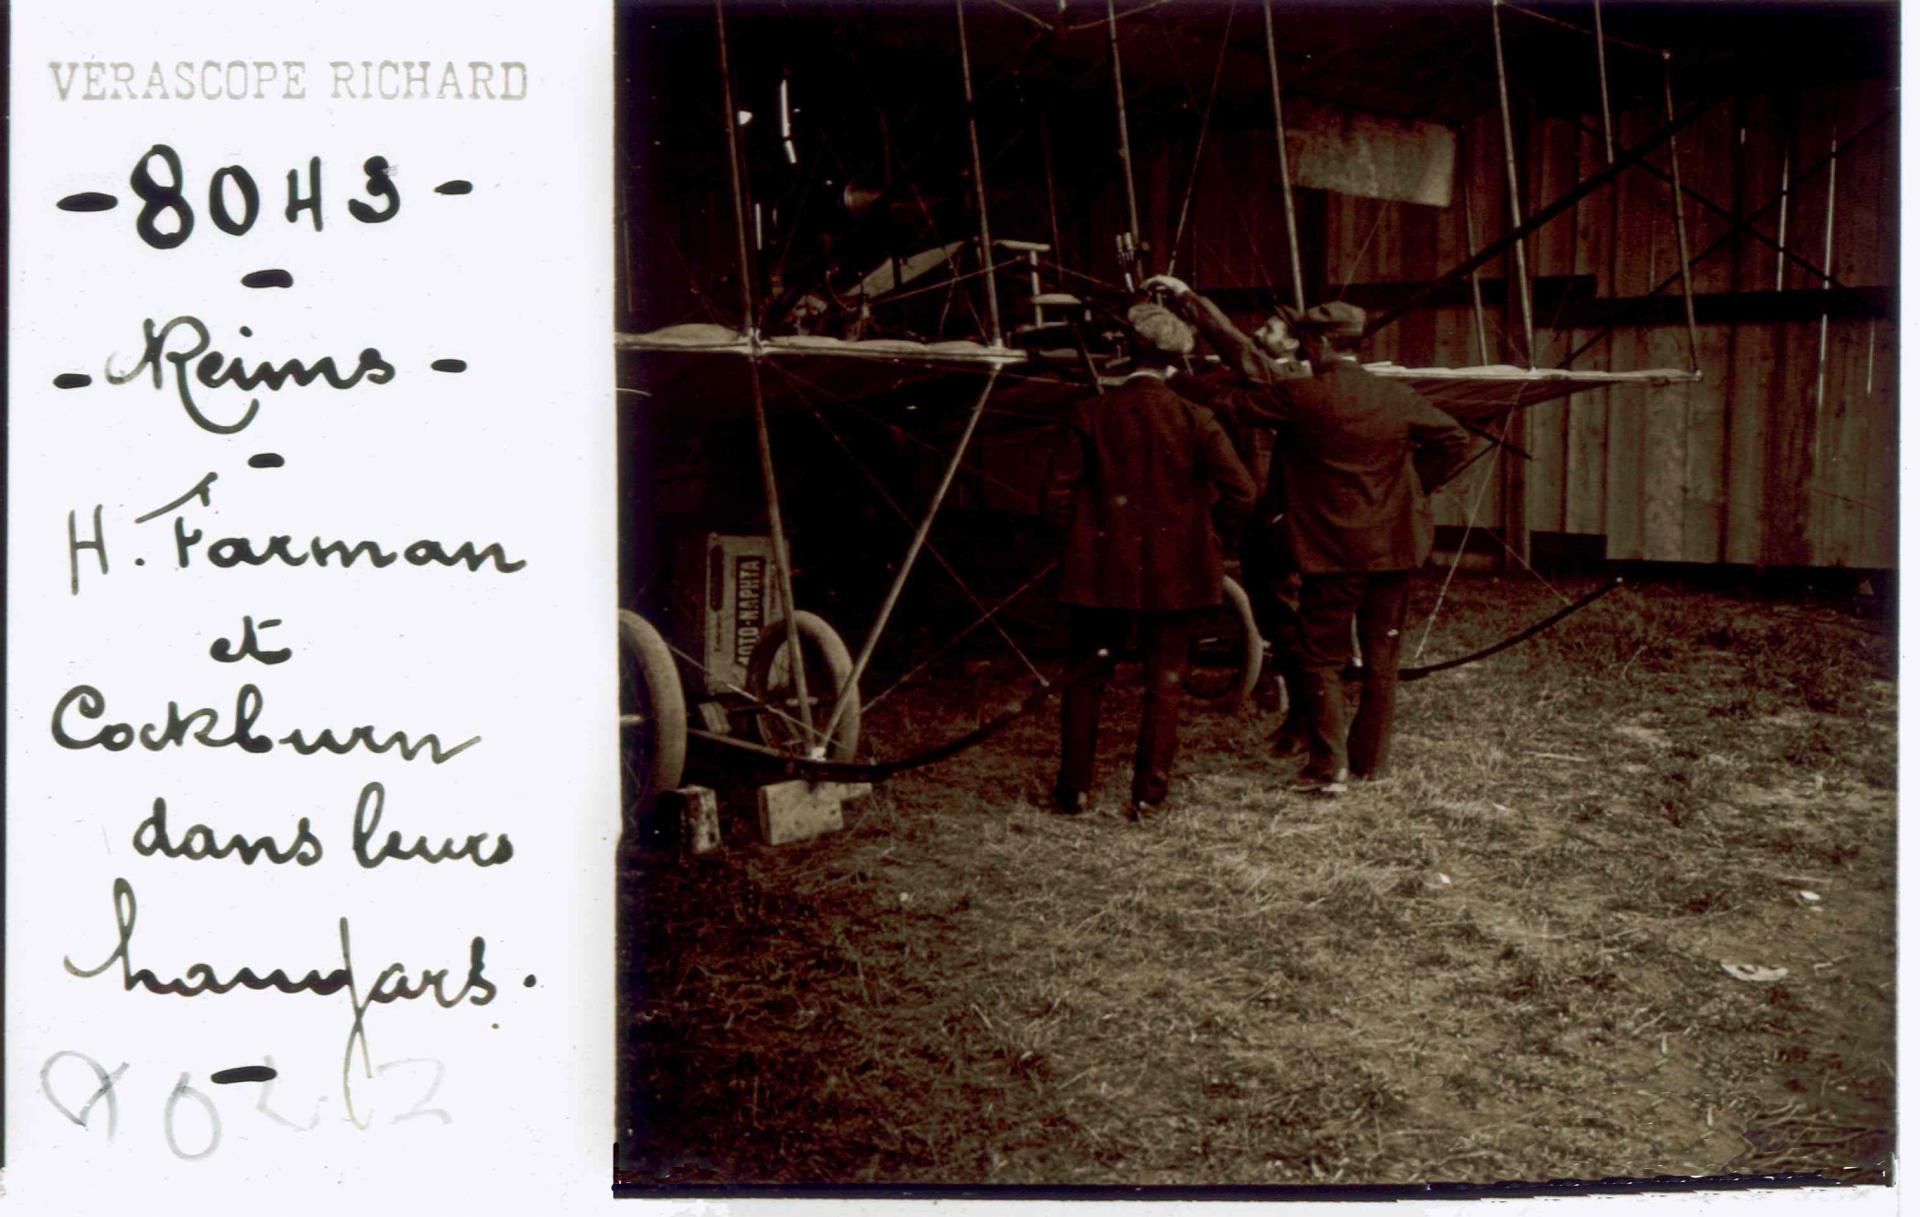 VÉRASCOPE RICHARD
- 8043 -
-
- Reims -
-
H. Farman
et
Cockburn
dans leurs
hangars.
-
MOTO-NAPHTA